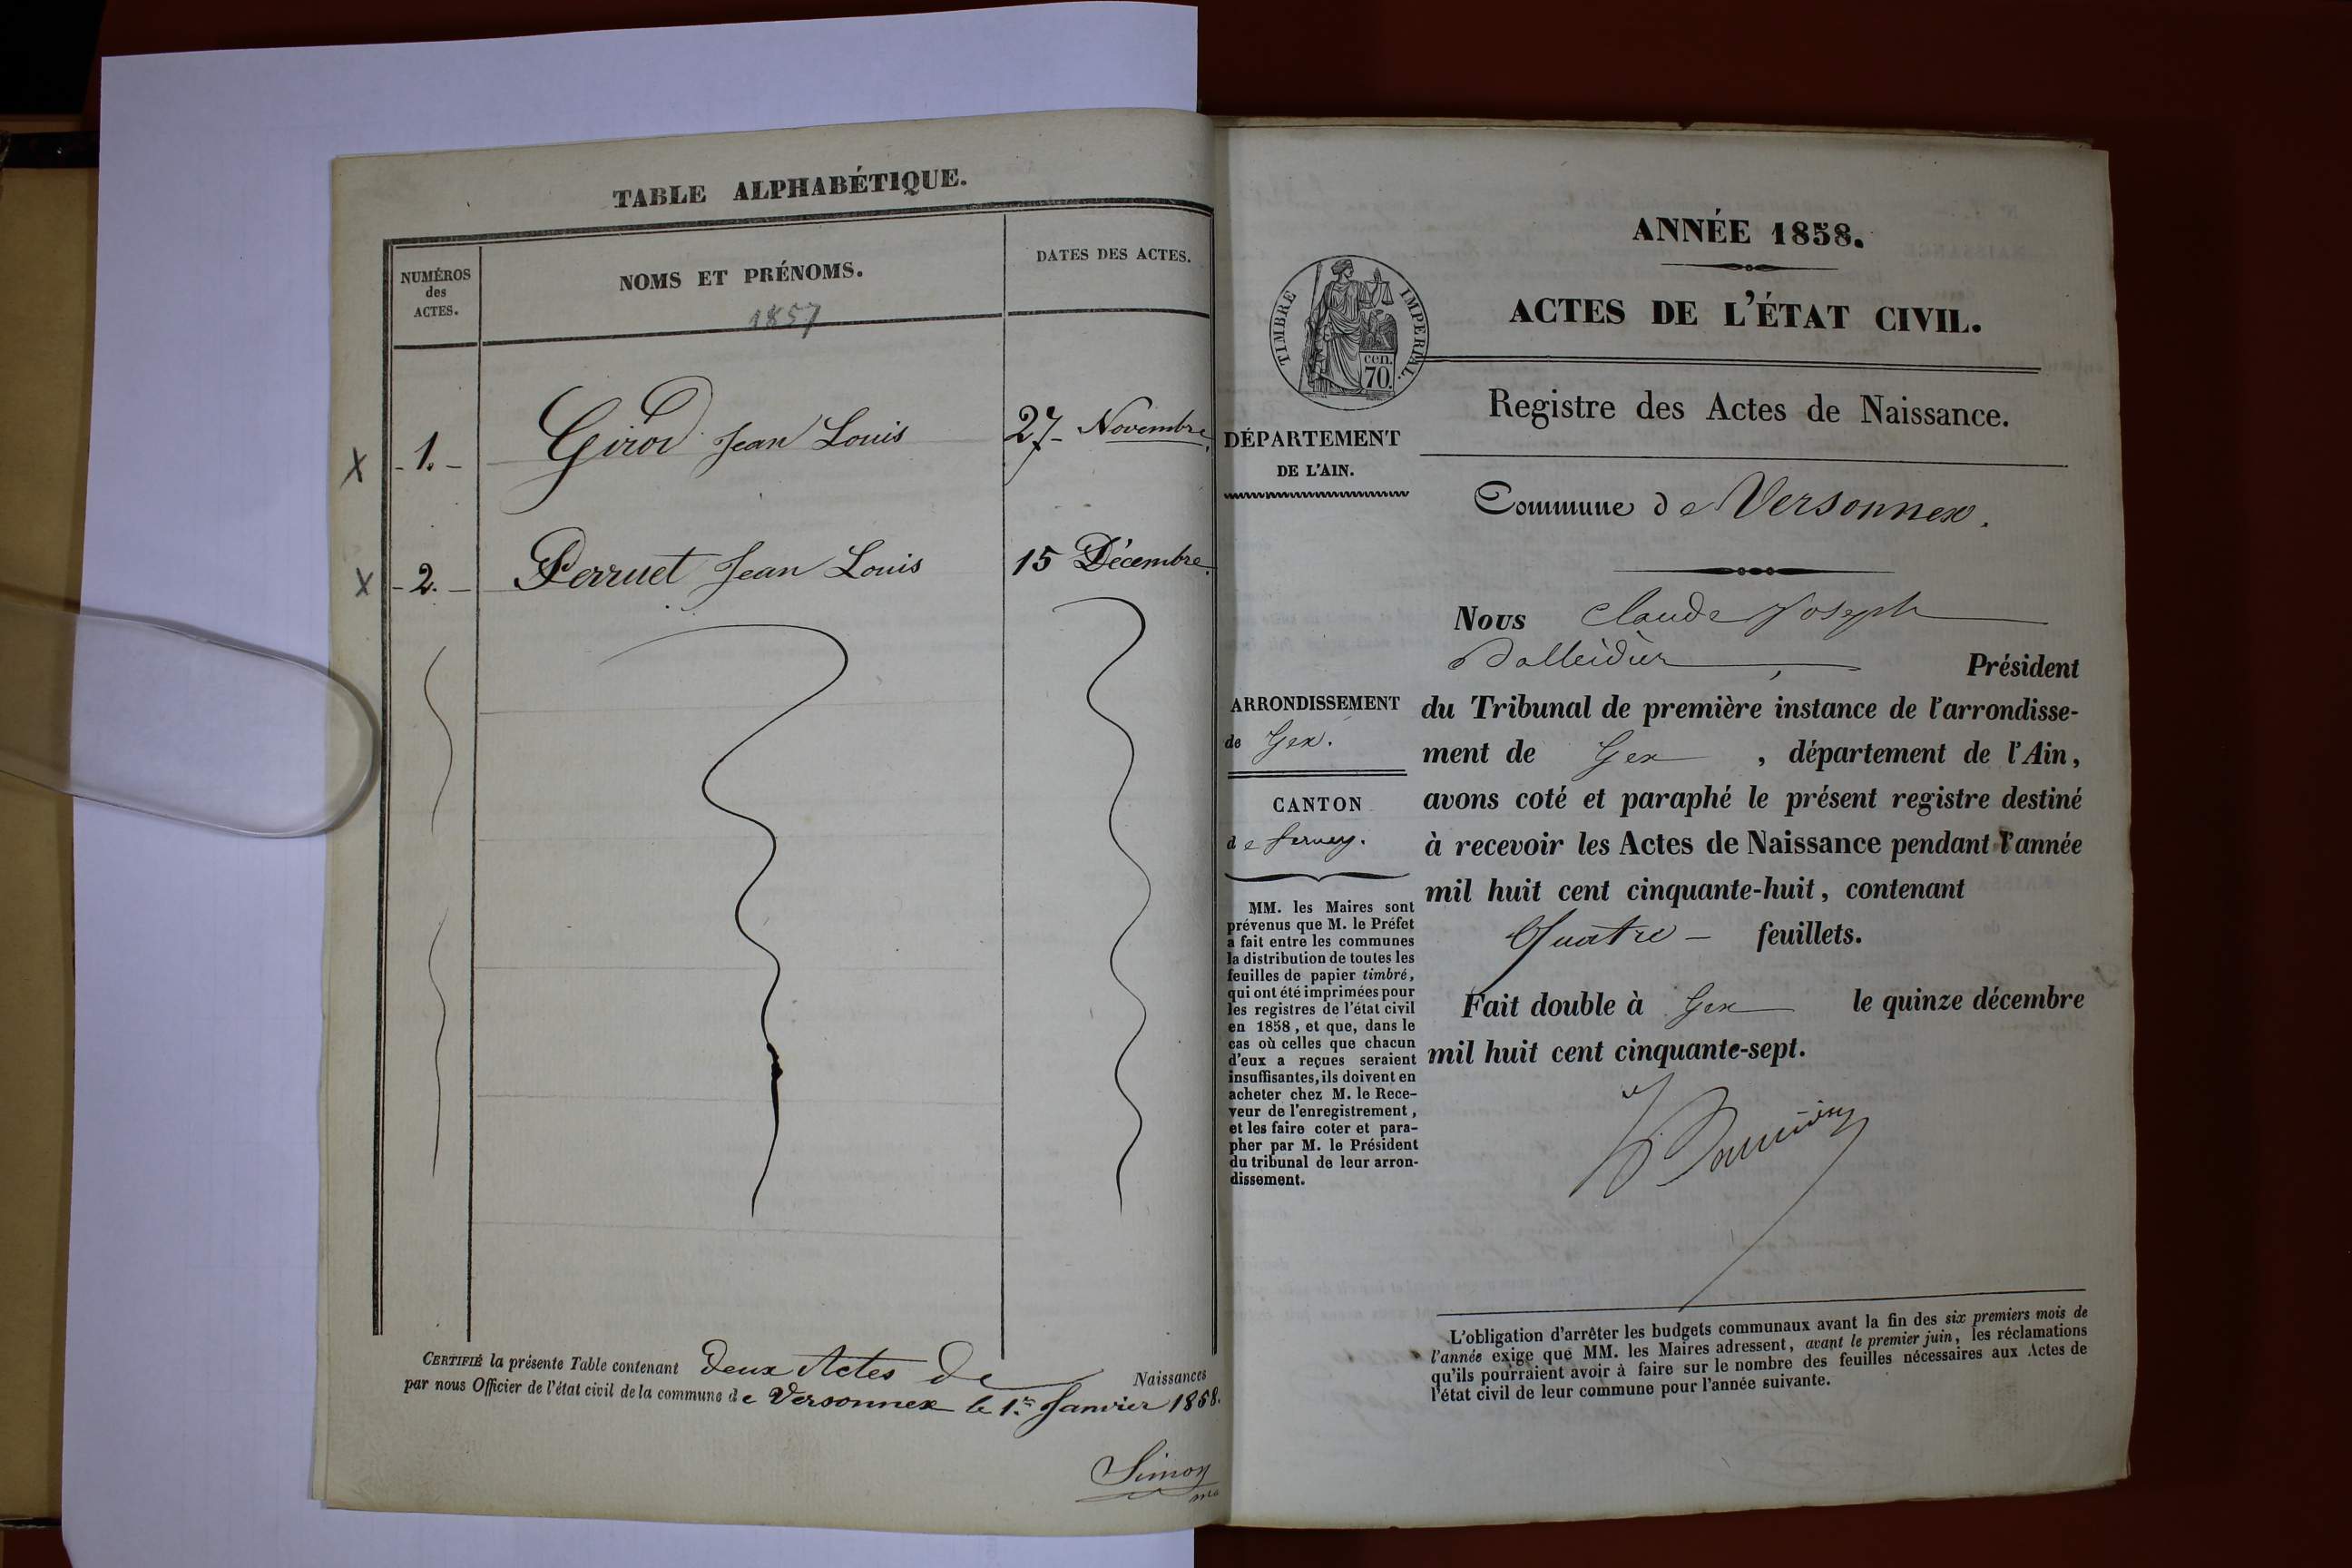 TABLE ALPHABÉTIQUE.
NUMÉROS
des
ACTES.
NOMS ET PRÉNOMS.
1857
DATES DES ACTES.
X - 1. - Girod Jean Louis 27 Novembre.
X - 2. - Perruet Jean Louis 15 Décembre.
CERTIFIÉ la présente Table contenant deux Actes de Naissances
par nous Officier de l'état civil de la commune de Versonnex le 1er Janvier 1858.
Simon
ANNÉE 1858.
ACTES DE L'ÉTAT CIVIL.
TIMBRE IMPERIAL.
cen.
70.
Registre des Actes de Naissance.
DÉPARTEMENT
DE L'AIN.
Commune de Versonnex.
ARRONDISSEMENT
de Gex.
CANTON
de Ferney.
MM. les Maires sont
prévenus que M. le Préfet
a fait entre les communes
la distribution de toutes les
feuilles de papier timbré,
qui ont été imprimées pour
les registres de l'état civil
en 1858, et que, dans le
cas où celles que chacun
d'eux a reçues seraient
insuffisantes, ils doivent en
acheter chez M. le Rece-
veur de l'enregistrement,
et les faire coter et para-
pher par M. le Président
du tribunal de leur arron-
dissement.
Nous Claude Joseph
Président
du Tribunal de première instance de l'arrondisse-
ment de Gex, département de l'Ain,
avons coté et paraphé le présent registre destiné
à recevoir les Actes de Naissance pendant l'année
mil huit cent cinquante-huit, contenant
Quatre - feuillets.
Fait double à Gex le quinze décembre
mil huit cent cinquante-sept.
L'obligation d'arrêter les budgets communaux avant la fin des six premiers mois de
l'année exige que MM. les Maires adressent, avant le premier juin, les réclamations
qu'ils pourraient avoir à faire sur le nombre des feuilles nécessaires aux Actes de
l'état civil de leur commune pour l'année suivante.